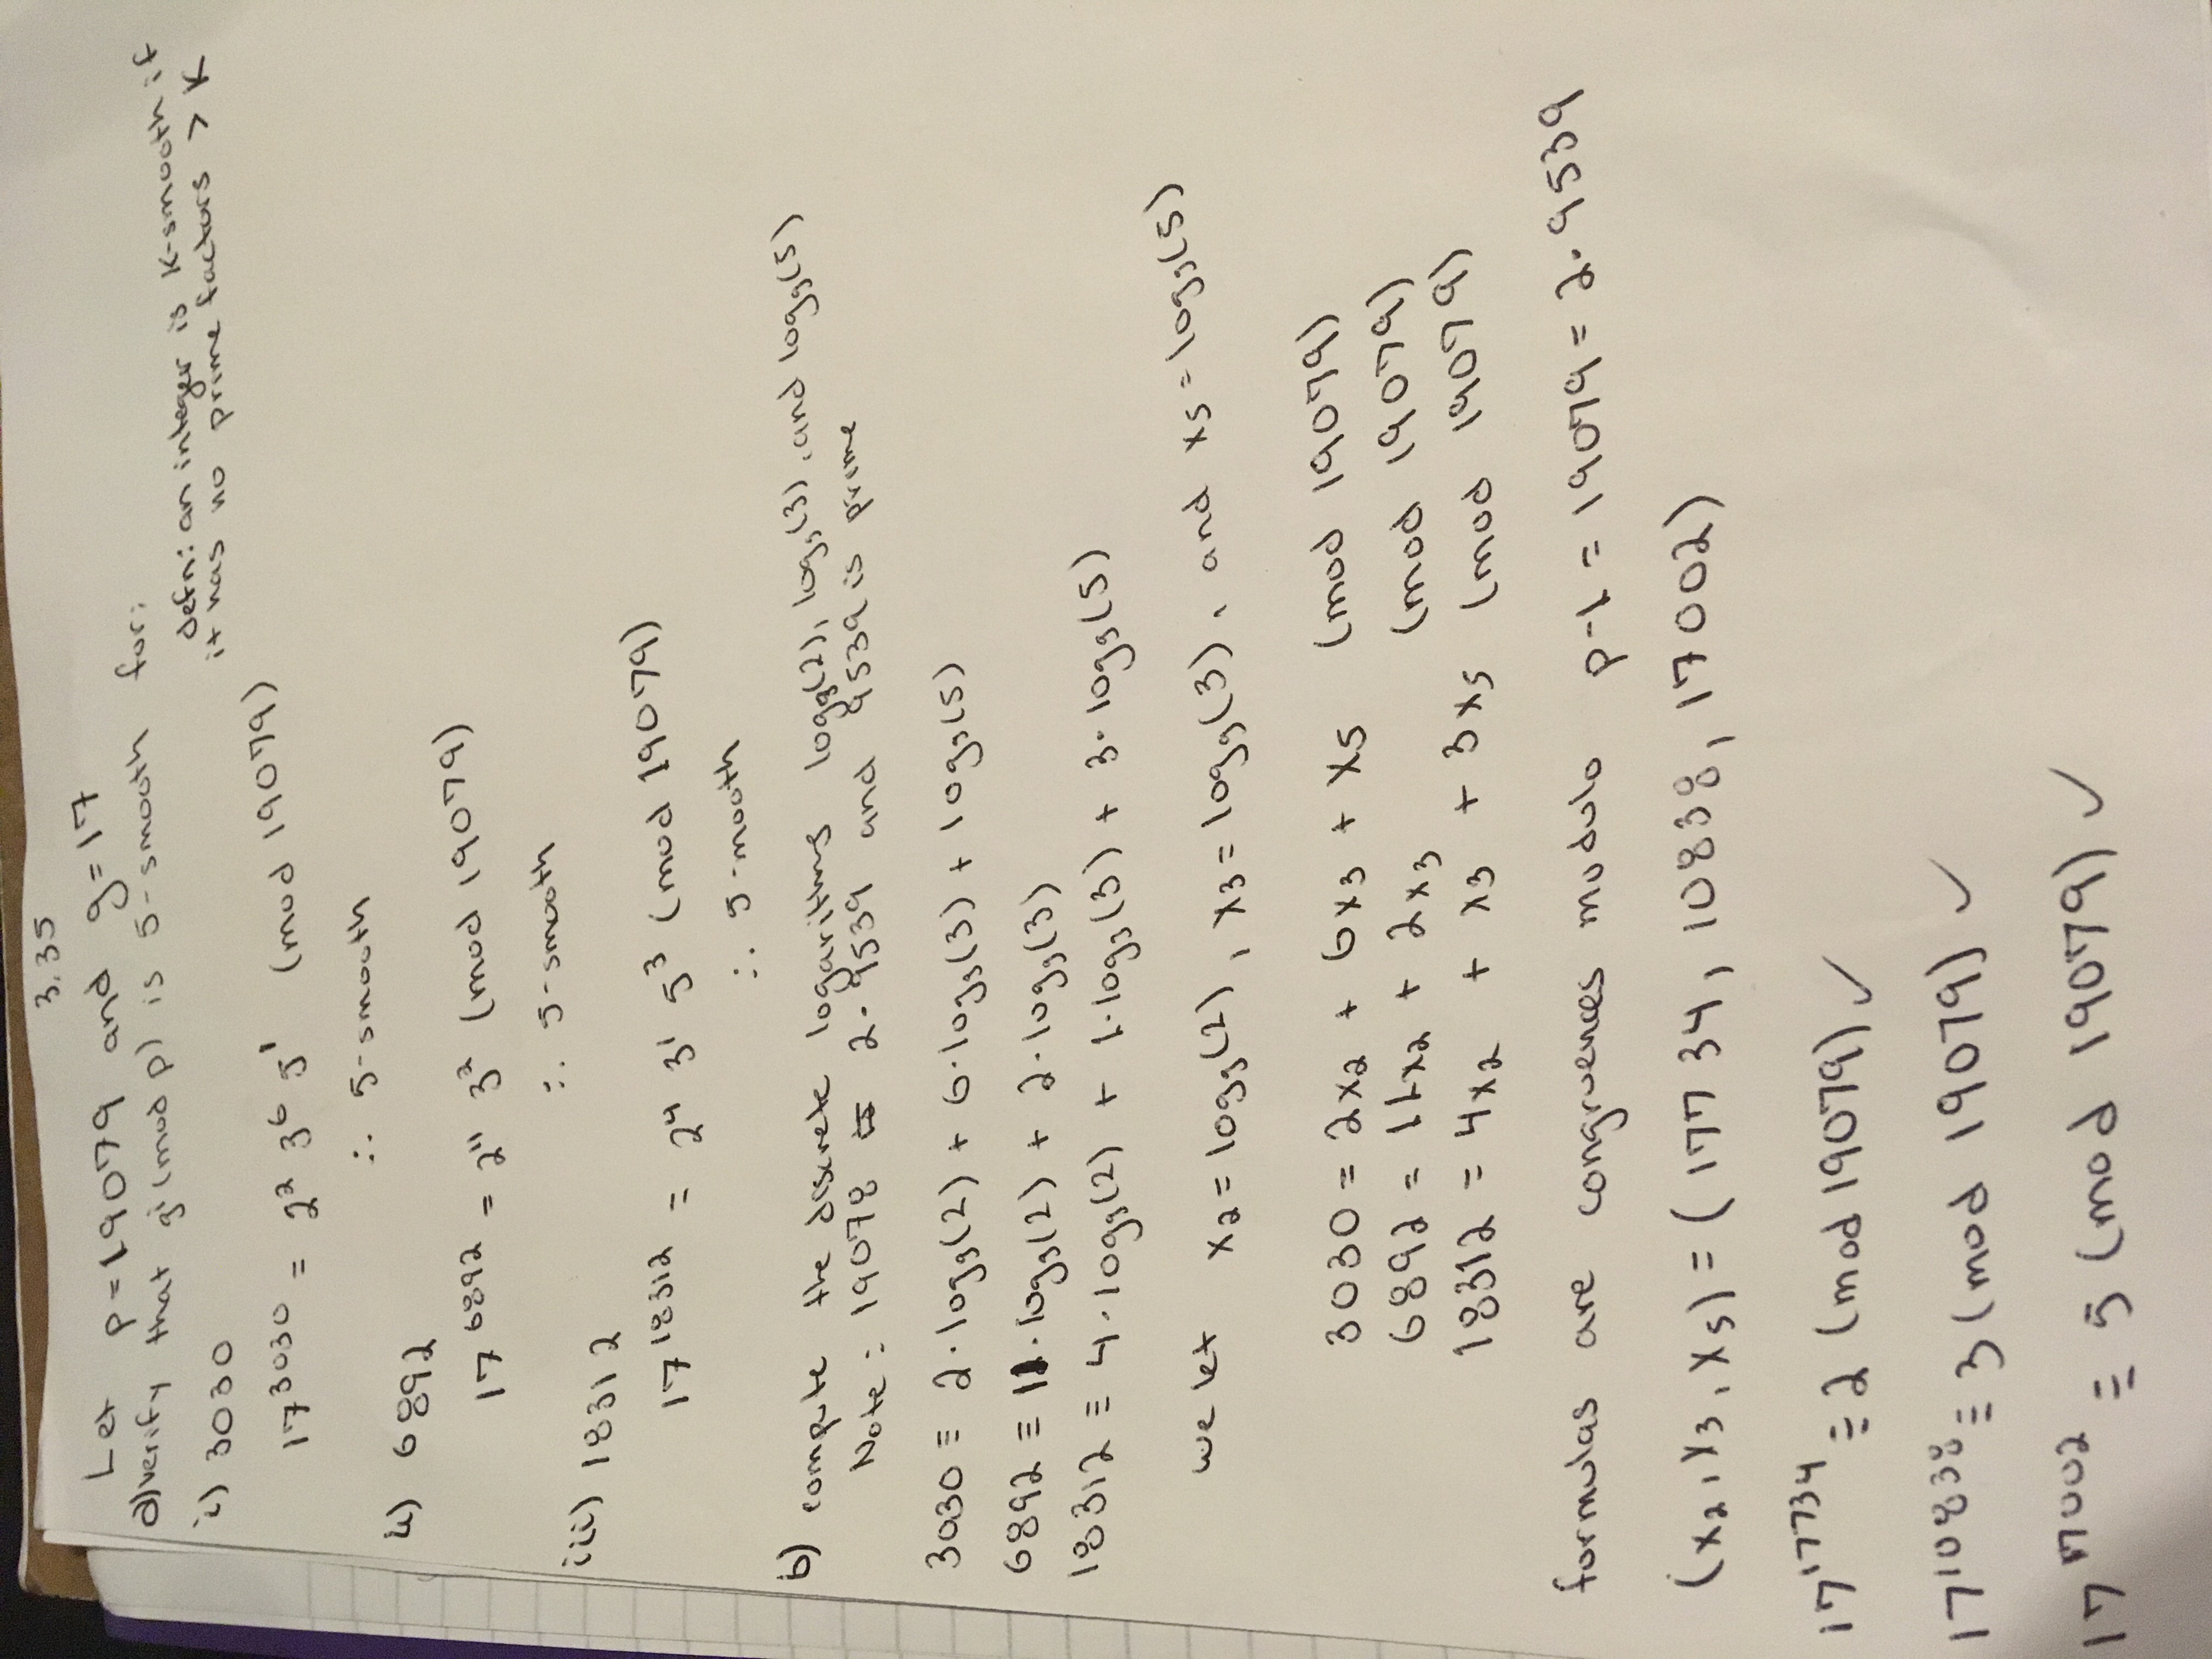 3.35
Let p=19079 and g=17
a) verify that gⁱ (mod p) is 5-smooth for:
defn: an integer is K-smooth if
it has no prime factors > K
i) 3030
17³⁰³⁰ = 2² 3⁶ 5¹ (mod 19079)
∴ 5-smooth
ii) 6892
17⁶⁸⁹² = 2¹¹ 3² (mod 19079)
∴ 5-smooth
iii) 18312
17¹⁸³¹² = 2⁴ 3¹ 5³ (mod 19079)
∴ 5-mooth
b) compute the discrete logarithms log_g(2), log_g(3), and log_g(5)
Note: 19078 is 2·9539 and 9539 is prime
3030 ≡ 2·log_g(2) + 6·log_g(3) + log_g(5)
6892 ≡ 11·log_g(2) + 2·log_g(3)
18312 ≡ 4·log_g(2) + 1·log_g(3) + 3·log_g(5)
we let x₂=log_g(2), x₃=log_g(3), and x₅=log_g(5)
3030 = 2x₂ + 6x₃ + x₅ (mod 19079)
6892 = 11x₂ + 2x₃ (mod 19079)
18312 = 4x₂ + x₃ + 3x₅ (mod 19079)
formulas are congruences modulo p-1 = 19079 = 2·9539
(x₂, x₃, x₅) = (17734, 10838, 17002)
17¹⁷⁷³⁴ ≡ 2 (mod 19079) ✓
17¹⁰⁸³⁸ ≡ 3 (mod 19079) ✓
17¹⁷⁰⁰² ≡ 5 (mod 19079) ✓